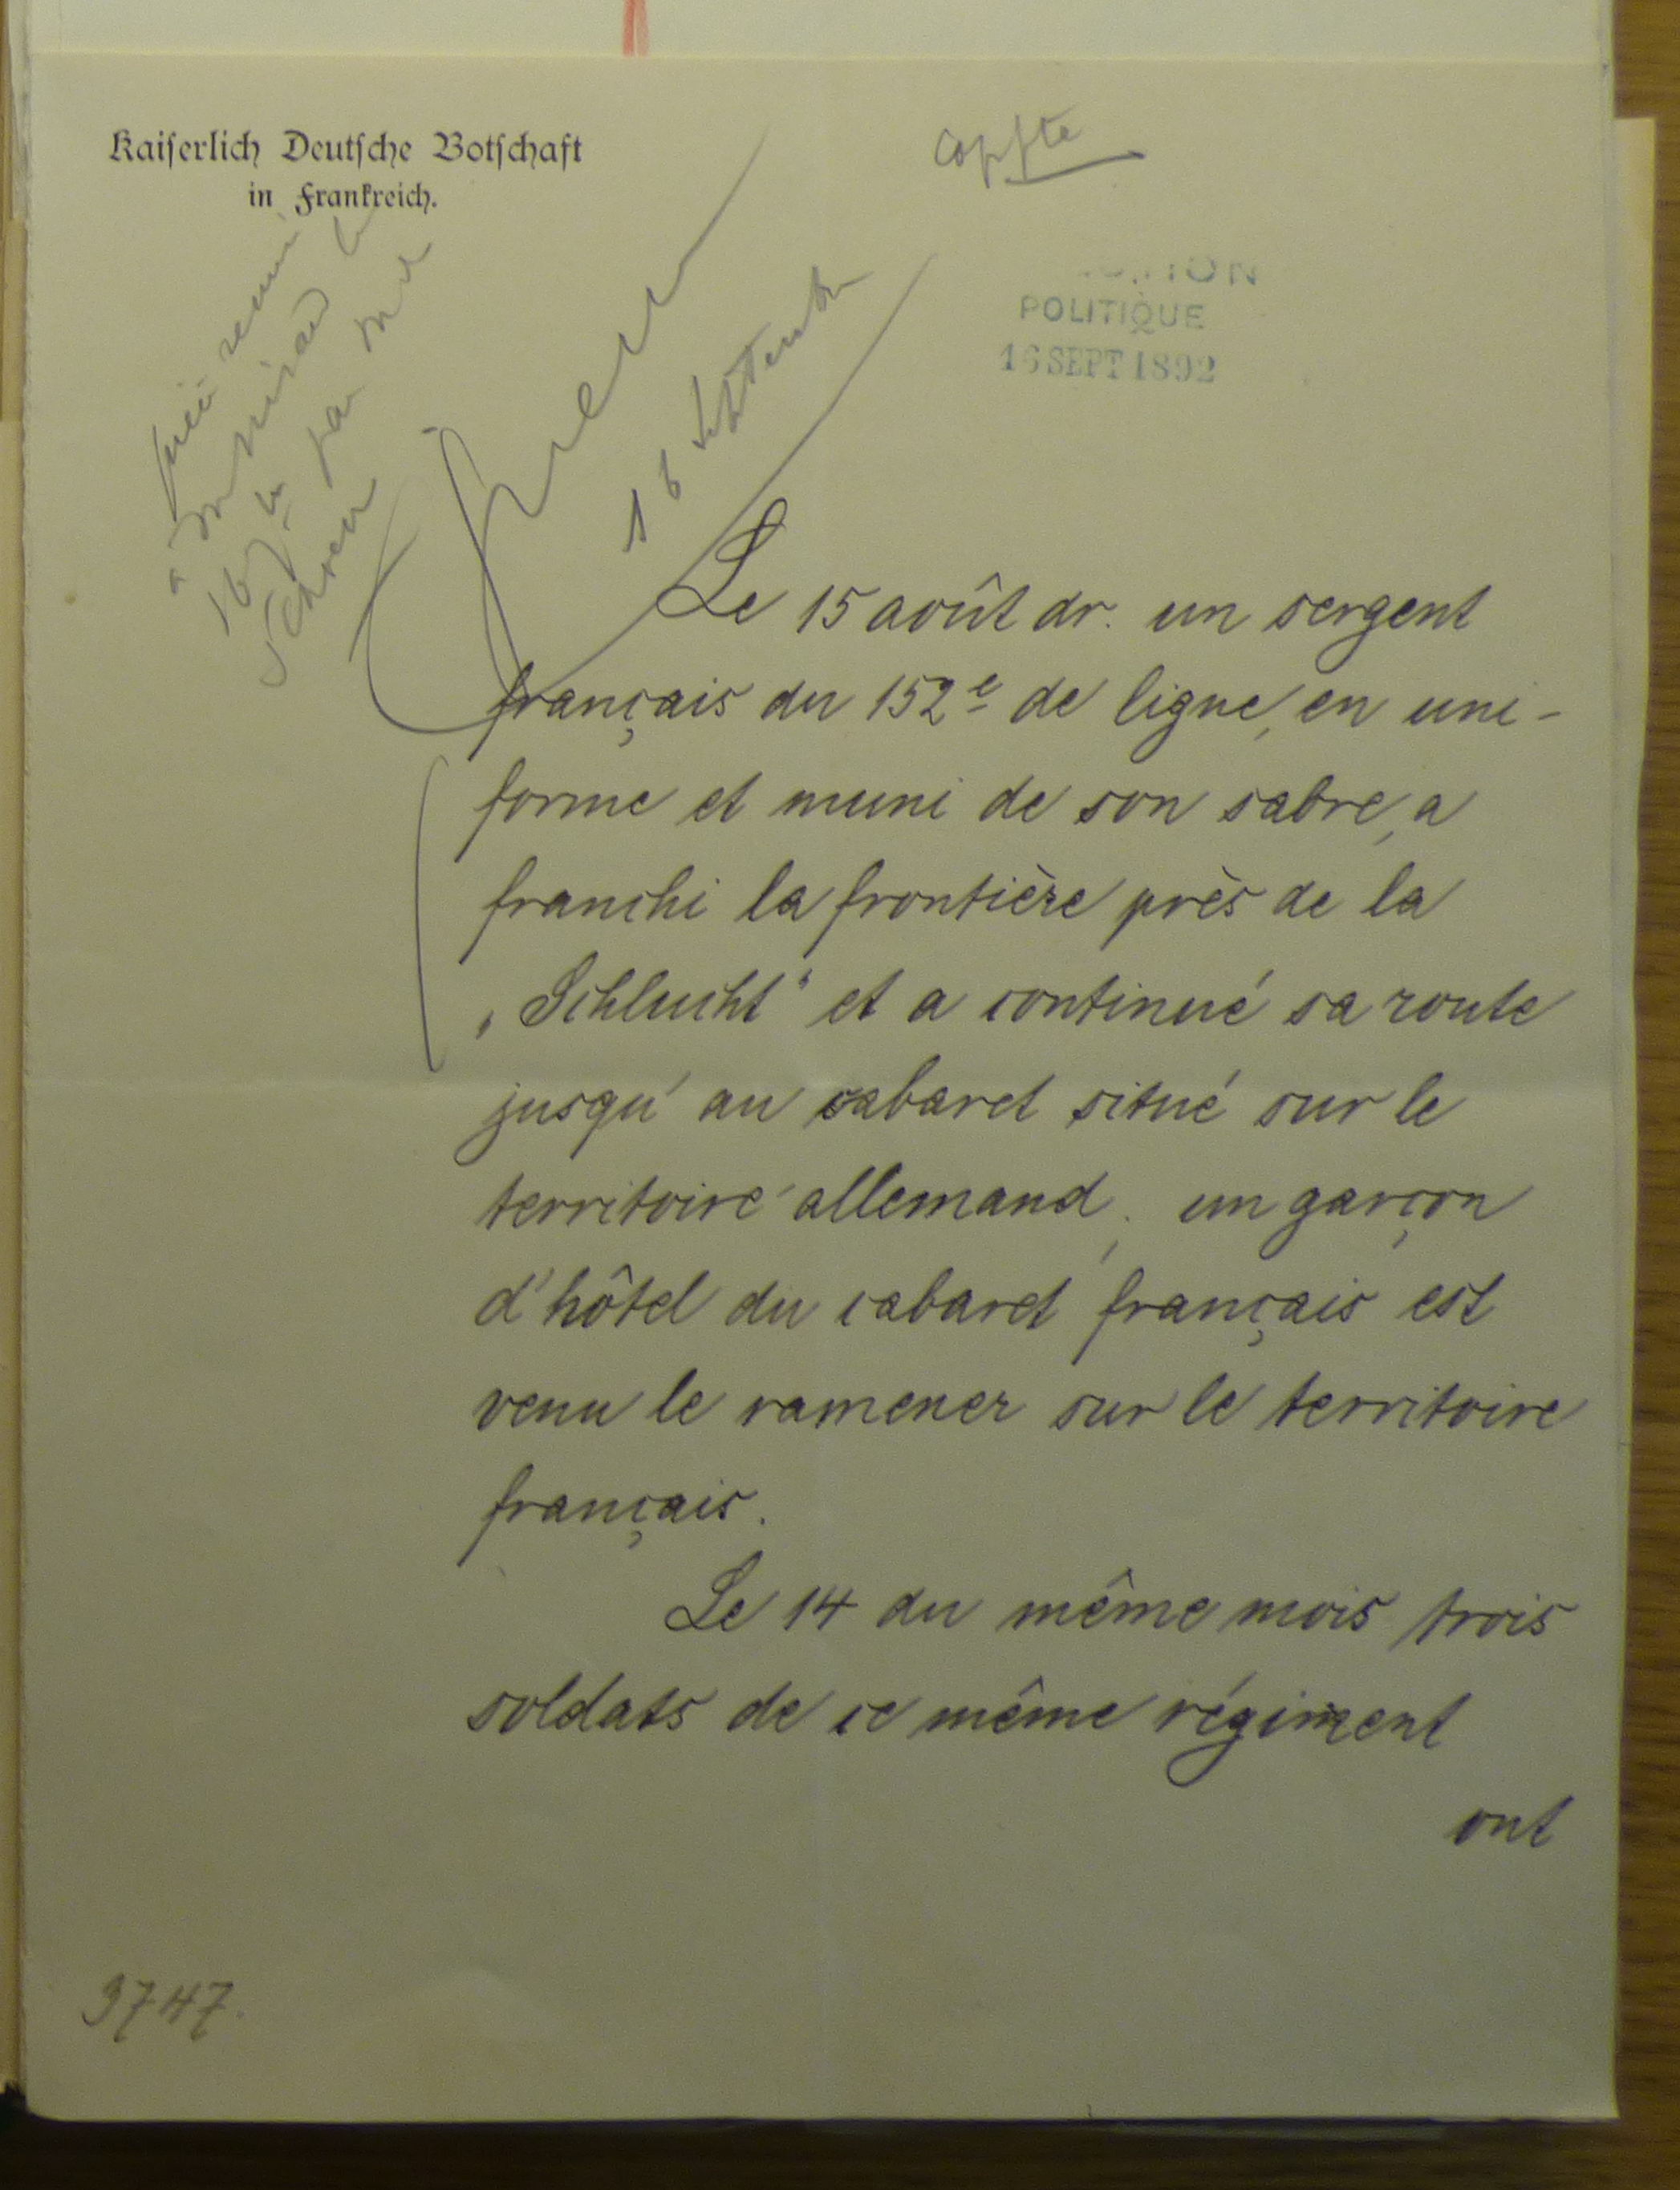 Kaiserlich Deutsche Botschaft
in Frankreich.
POLITIQUE
16 SEPT 1892
remis
16 par
Schoen
16 Septembre
Le 15 août dr. un sergent
français du 152e de ligne, en uni-
forme et muni de son sabre, a
franchi la frontière près de la
„Schlucht“ et a continué sa route
jusqu'au cabaret situé sur le
territoire allemand, un garçon
d'hôtel du cabaret français est
venu le ramener sur le territoire
français.
Le 14 du même mois trois
soldats de ce même régiment
ont
3747.